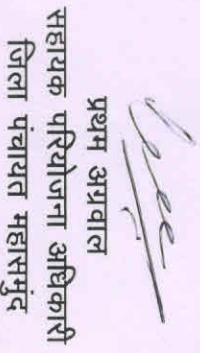 प्रथम अग्रवाल
सहायक परियोजना अधिकारी
जिला पंचायत महासमुंद